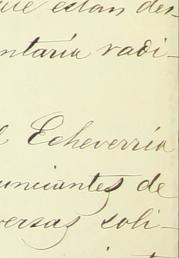 que estan des-
ntaría radi-
l Echeverría
unciantes de
versas soli-